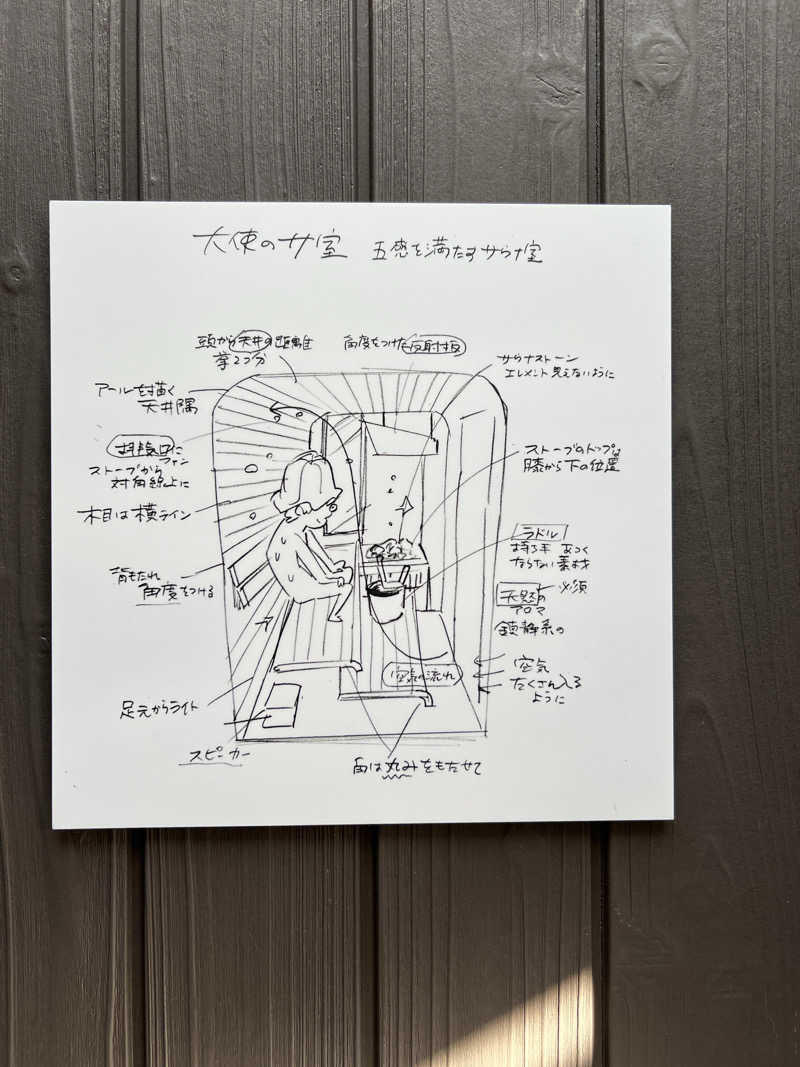 天使のサ室 五感を満たすサウナ室
頭から天井の距離
拳2つ分
角度をつけた反射板
サウナストーン
エレメント見えないように
アールを描く
天井隅
排気口に
ファン
ストーブから
対角線上に
ストーブのトップは
膝から下の位置
木目は横ライン
ラドル
持ち手 あつく
ならない素材
背もたれ
角度をつける
必須
天然の
アロマ
鎮静系の
空気の流れ
空気
たくさん入る
ように
足元からライト
スピーカー
角は丸みをもたせて